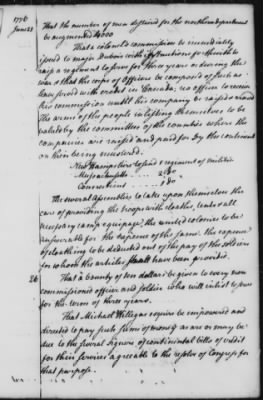 1776
June 25
That the number of men destined for the northern department
be augmented to 4000
That a colonel's commission be immediately
issued to major Dubois with instructions forthwith to
raise a regiment to serve for three years or during the
war & that the corps of officers be composed of such as
have served with credit in Canada; no officer to receive
his commission until his company be raised and
the arms of the people inlisting themselves to be
valued by the committee of the counties where the
companies are raised and paid for by the continent
on their being mustered.
New Hampshire to send 1 regiment of militia
Massachusetts ... 2 do
Connecticut ... 1 do
The several assemblies to take upon themselves the
care of providing the troops with cloaths, tents & all
necessary camp equipage; the united colonies to be
answerable for the expence of the same, the expence
of cloathing to be deducted out of the pay of the soldiers
for whom the articles shall have been provided.
26
That a bounty of ten dollars be given to every non
commissioned officer and soldier who will inlist to serve
for the term of three years.
That Michael Hillegas esquire be empowered and
directed to pay such sums of money as are or may be
due to the several signers of continental bills of credit
for their services agreeable to the resolves of Congress for
that purpose.